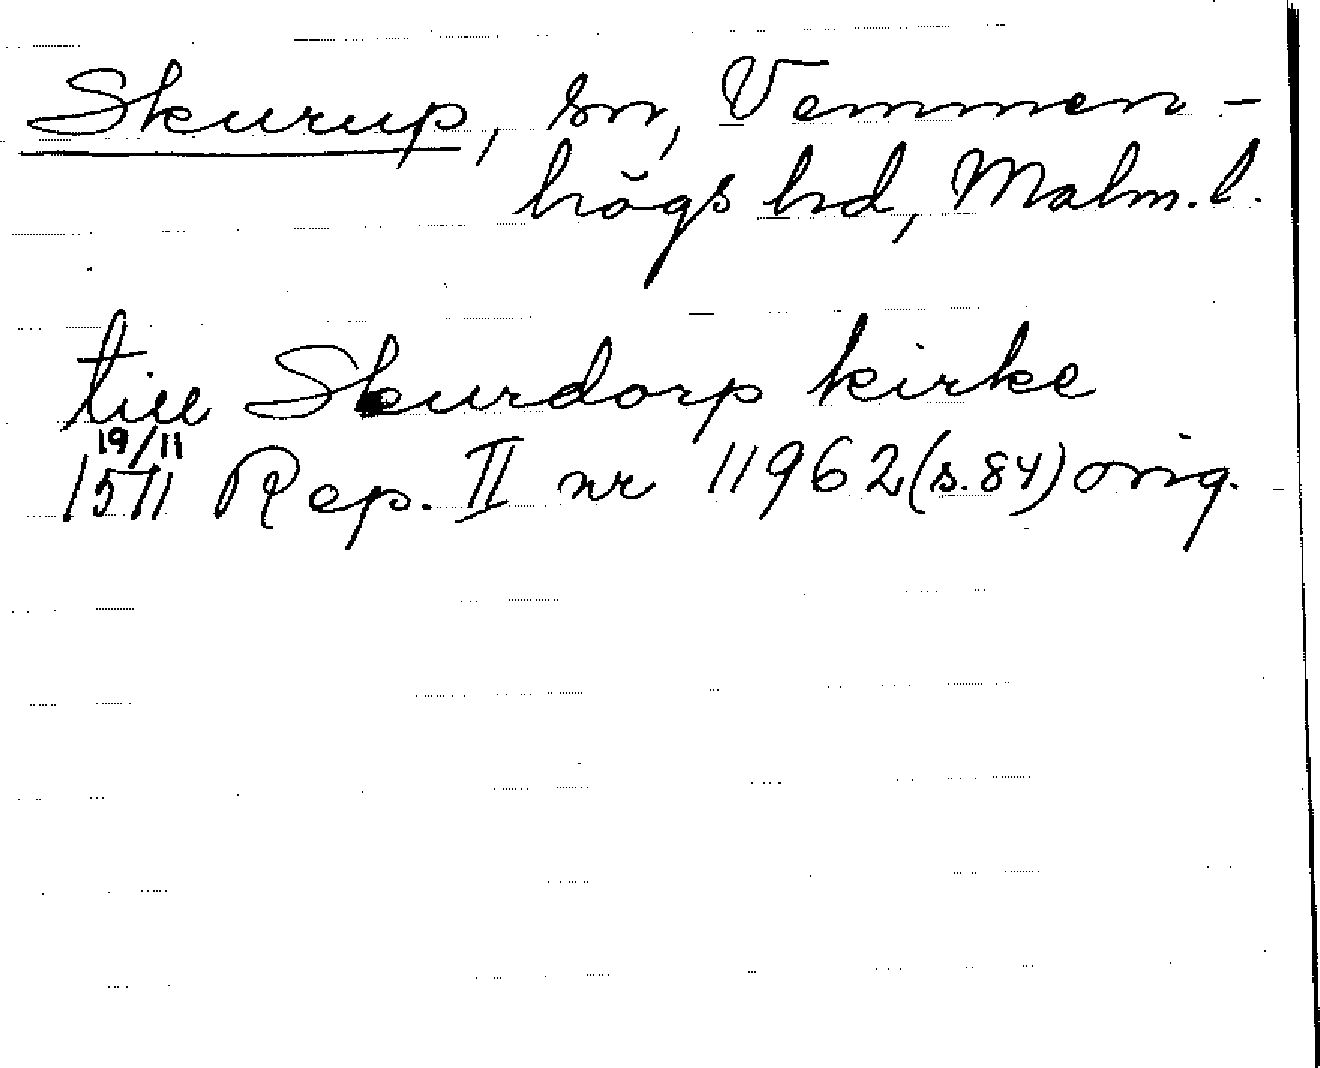 Skurup, sn, Vemmen-
högs hd, Malm. l.
till Skurdorp kirke
19/11
1511 Rep. II nr 11962 (s. 84) orig.